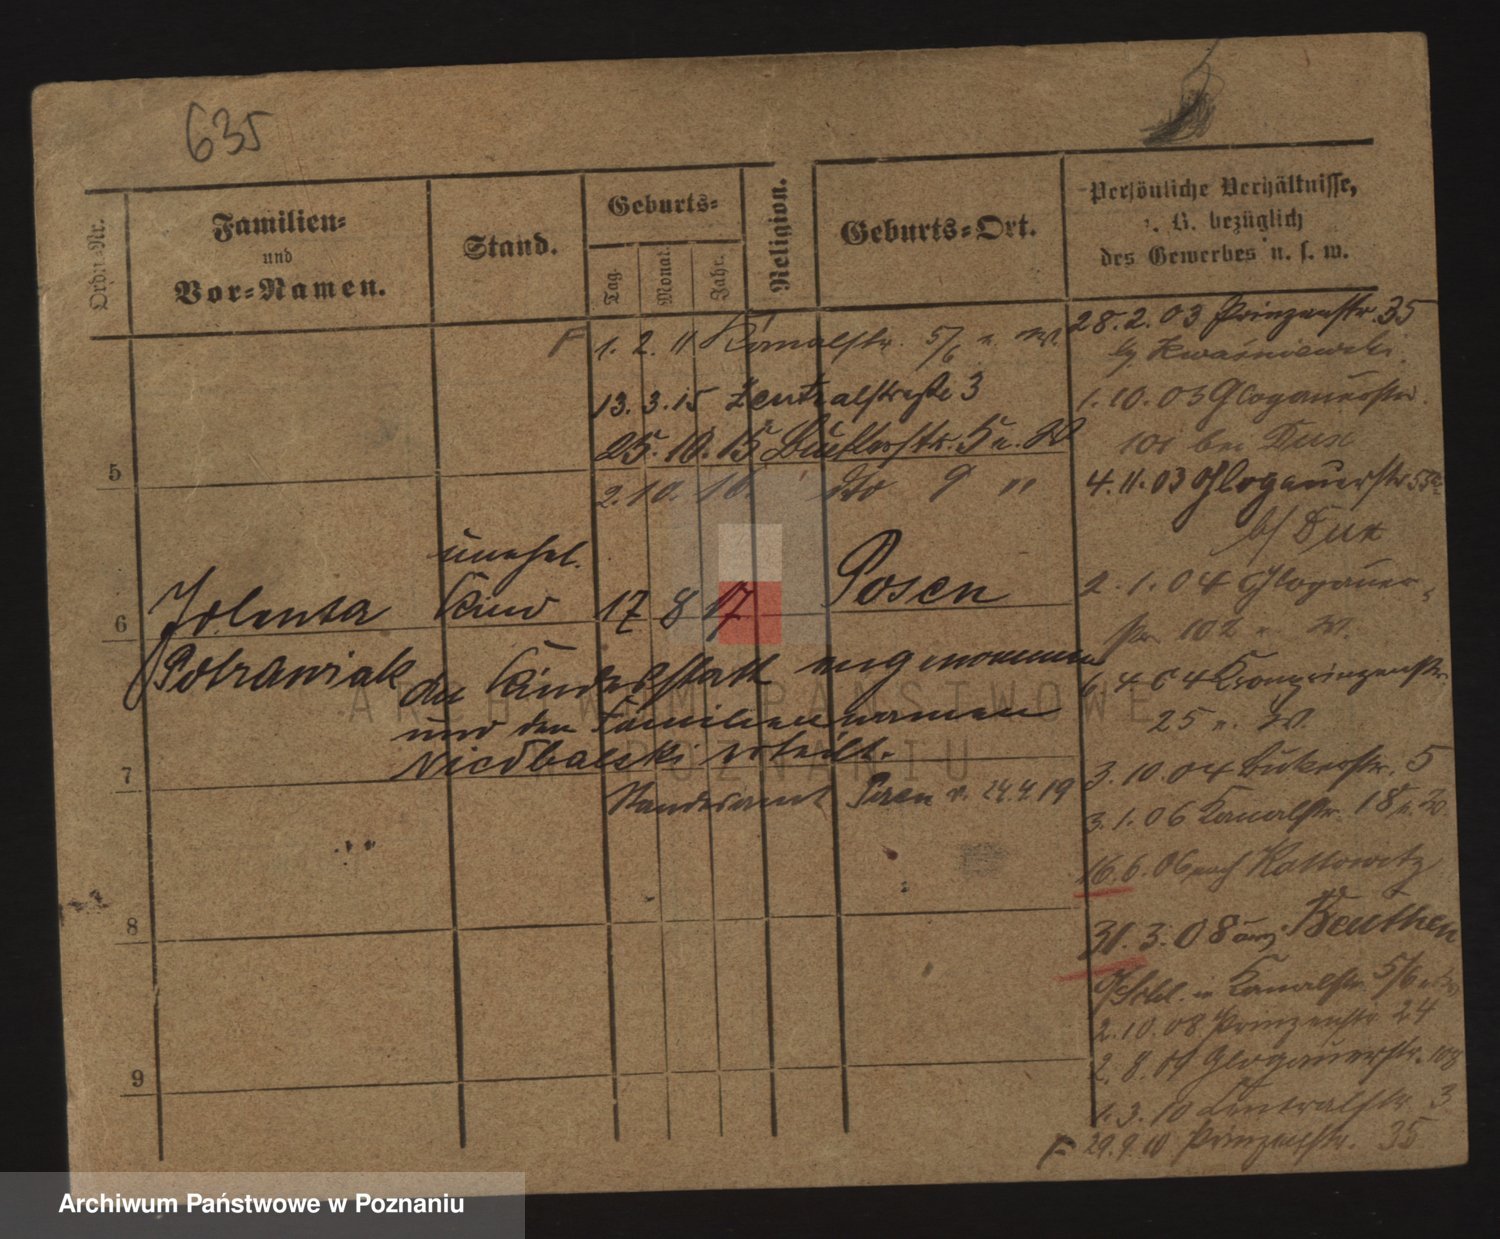 635
Ordn.-Nr.
Familien-
und
Vor-Namen.
Stand.
Geburts-
Tag.
Monat.
Jahr.
Religion.
Geburts-Ort.
Persönliche Verhältnisse,
z. B. bezüglich
des Gewerbes u. s. w.
F 1. 2. 11 Kanalstr. 5/6 n. W.
13. 3. 15 Zentralstraße 3
25. 10. 15 Bukerstr. 5 n. W
5
2. 10. 16. do 9 "
unehel.
6 Jolenta Kind 17 8 17 Posen
Potrawiak an Kindesstatt angenommen
und den Familiennamen
Niedbalski erteilt.
7
Standesamt Posen v. 24.4.19
8
9
28. 2. 03 Prinzenstr. 35
b/ Kwaśniewski.
1. 10. 03 Glogauerstr.
101 bei Dux
4. 11. 03 Glogauerstr.
b/ Dux
2. 1. 04 Glogauer-
str. 102 n. W.
6. 4. 04 Kronprinzenstr.
25 n. W.
3. 10. 04 Bukerstr. 5
3. 1. 06 Kanalstr. 18 n. W.
16. 6. 06 nach Kattowitz
31. 3. 08 aus Beuthen
O/Schl. in Kanalstr. 5/6
2. 10. 08 Prinzenstr. 24
2. 8. 09 Glogauerstr. 108
1. 3. 10 Zentralstr. 3
F 29. 9. 10 Prinzenstr. 35
ARCHIWUM PAŃSTWOWE
W POZNANIU
Archiwum Państwowe w Poznaniu